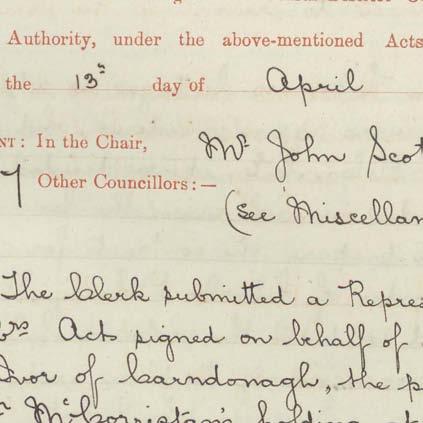 Authority, under the above-mentioned Acts
the 13th day of April
NT: In the Chair, Mr John Scot
7 Other Councillors:—
(See Miscellan
The Clerk submitted a Repres
rs Acts signed on behalf of
Ivor of Carndonagh, the p
McCorristan's holding at